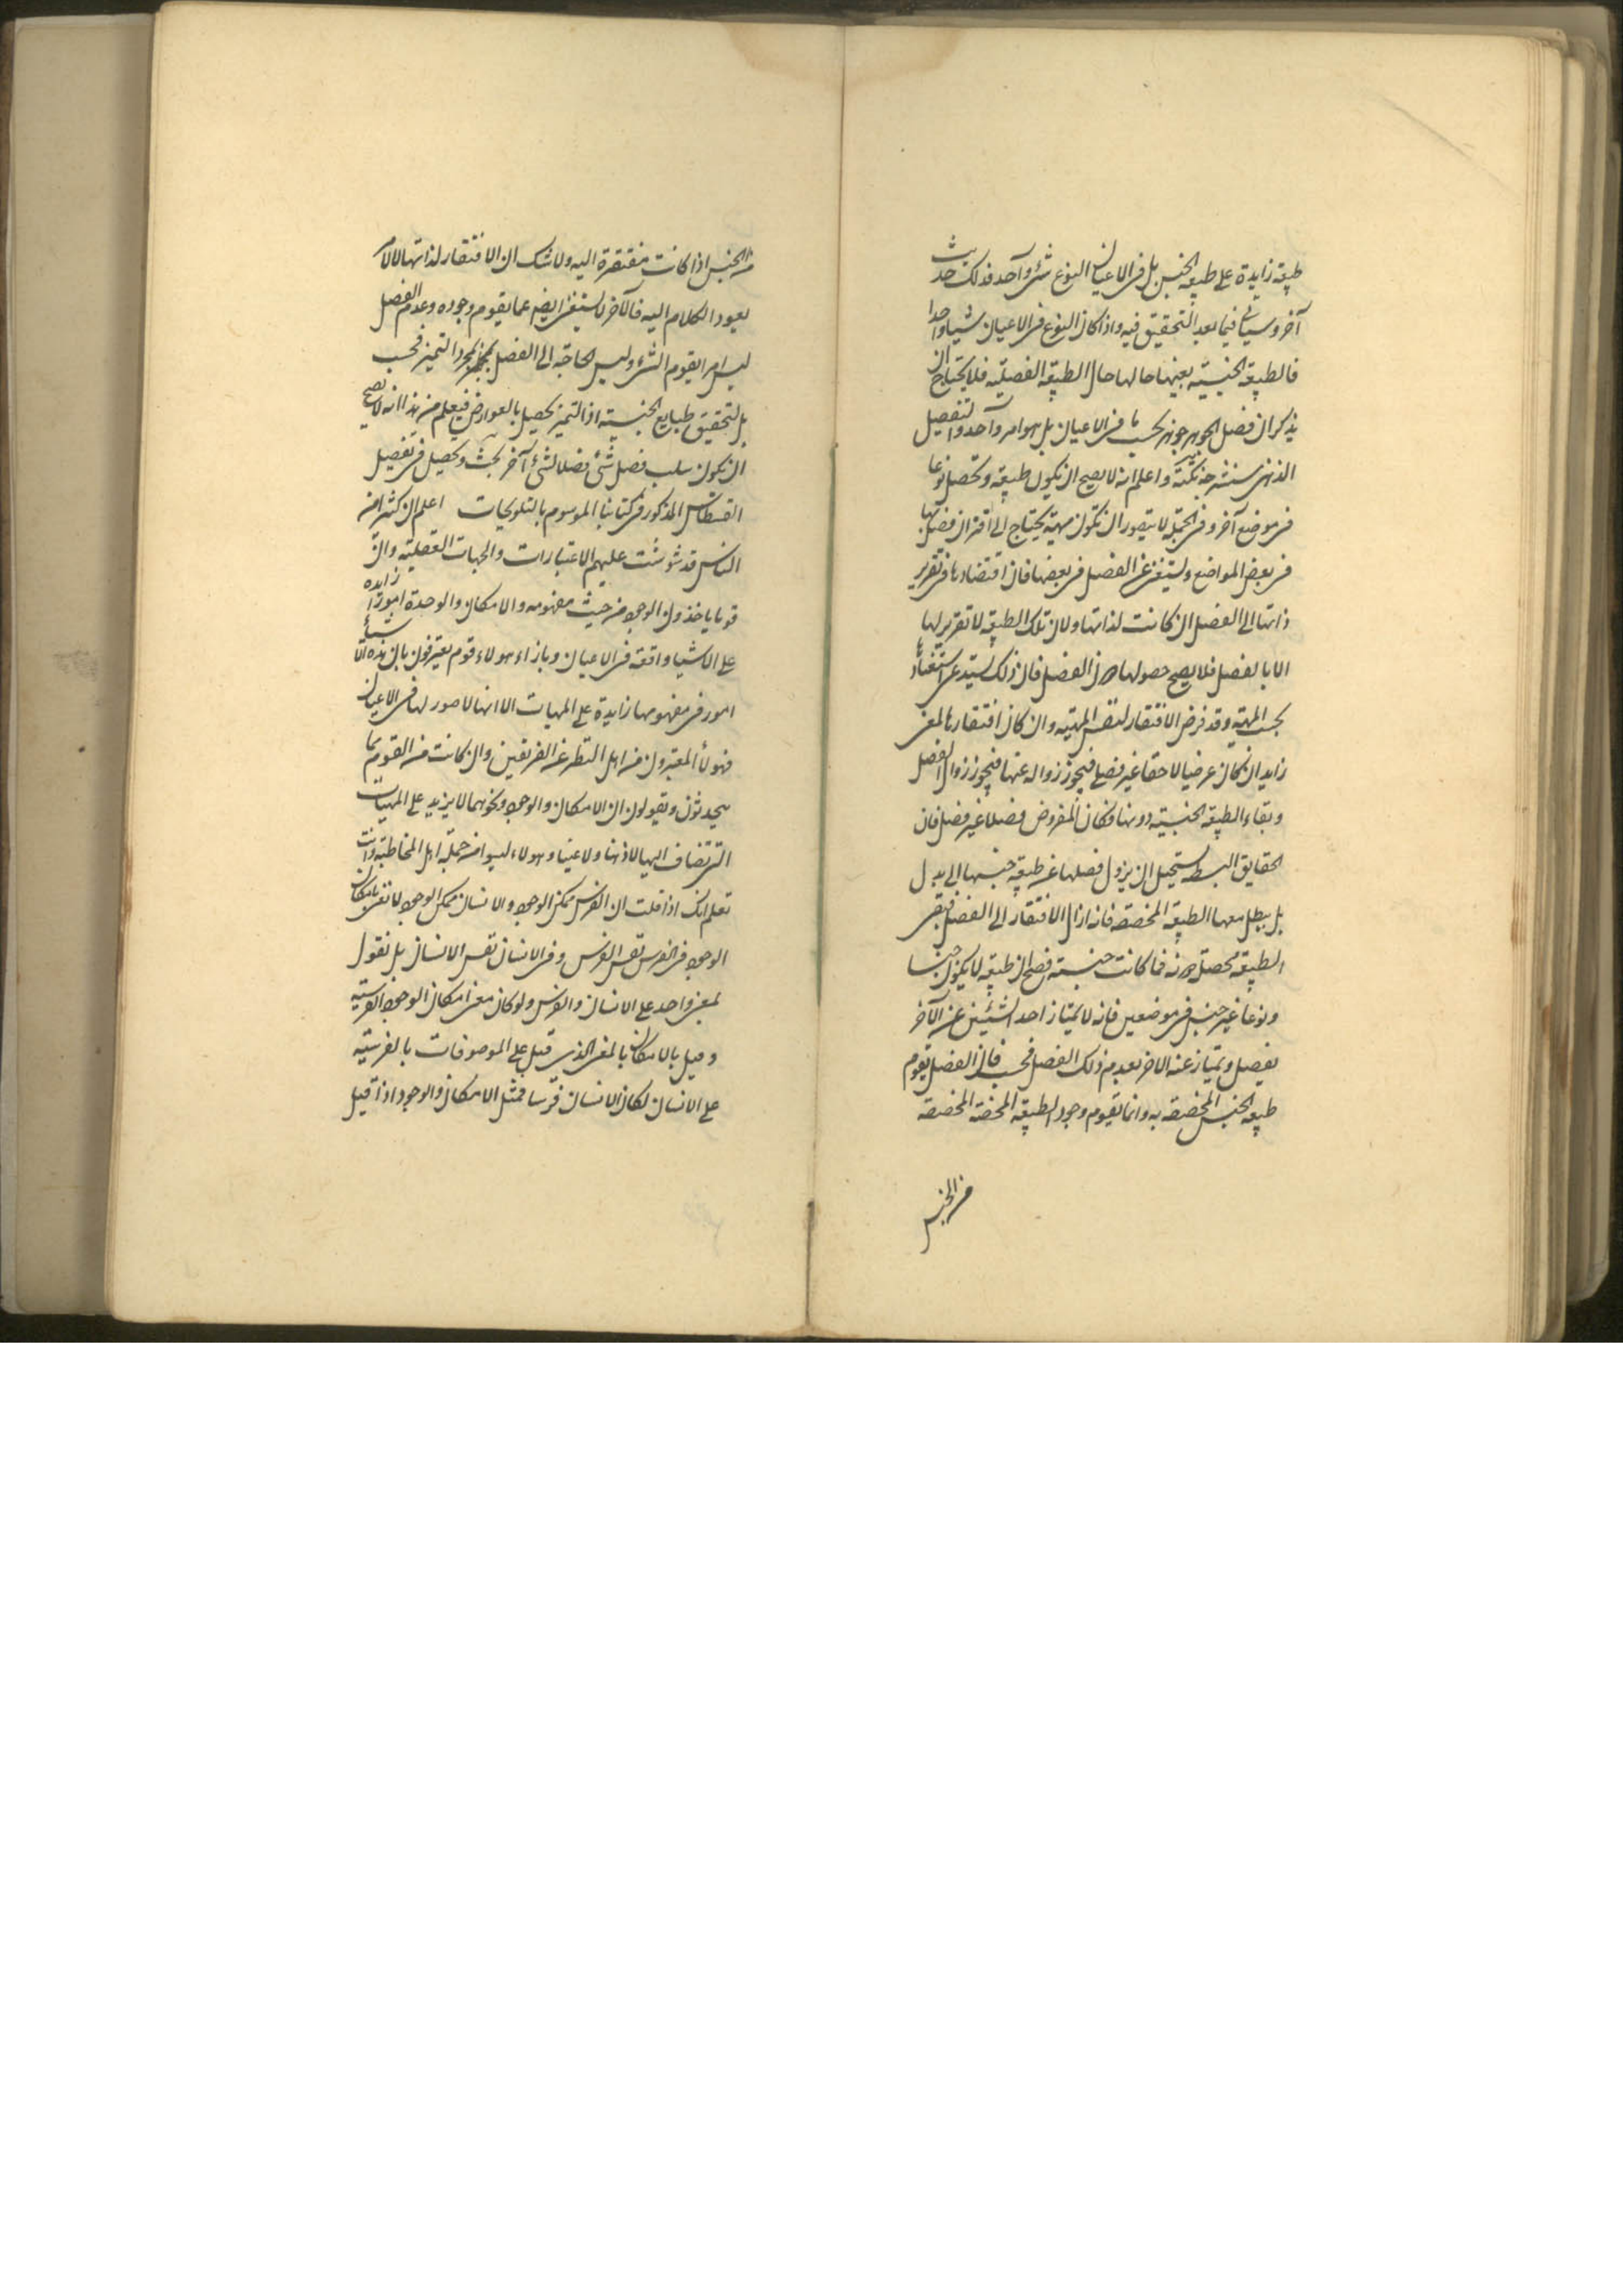 طبيعة زايدة على طبيعة الجنس بل فى الاعيان النوع شئ واحد فذلك حديث
آخر وسيأتى فيما بعد التحقيق فيه واذا كان النوع فى الاعيان شيئا واحدا
فالطبيعة الجنسية بعينها حالها حال الطبيعة الفصلية فلا يحتاج ان
يذكر ان فصل الجوهر جوهر بحسب ما فى الاعيان بل هو امر واحد والتفصيل
الذهنى واعلم انه لا يصح ان يكون طبيعة وتحصل نوعا
فى موضع آخر وفى الجملة لا يتصور ان تكون مهية يحتاج الى اقتران فصل بها
فى بعض المواضع ويستغنى عن الفصل فى بعضها فان اقتضاؤها فى تقرير
ذاتها الى الفصل ان كانت لذاتها ولان تلك الطبيعة لا تقرير لها
الا بالفصل فلا يصح حصولها دون الفصل فان ذلك يستدعى استغناءها
بحسب المهية وقد فرض الافتقار لنفس المهية وان كان افتقارها لمعنى
زايد ان كان عرضيا لاحقا غير فصلى فيجوز زواله عنها فيجوز زوال الفصل
وبقاء الطبيعة الجنسية دونها فكان المفروض فصلا غير فصل فان
الحقايق البسيطة يستحيل ان يزول فصلها عن طبيعة جنسها الى بدل
بل يبطل معها الطبيعة المخصصة فانه ازال الافتقار الى الفصل فبقى
الطبيعة محصلة دونه فما كانت جنسية فصح ان طبيعة لا يكون جنسا
ونوعا غير جنس فى موضعين فانه لا يمتاز احد الشيئين عن الآخر
بفصل ويمتاز عنه الاخر بعدم ذلك الفصل فحسب فان الفصل يقوم
طبيعة الجنس المخصصة به وانما يقوم وجود الطبيعة المخصصة
من الجنس
من الجنس اذا كانت مفتقرة اليه ولا شك ان الافتقار لذاتها لا لامر
يعود الكلام اليه فالآخر لا يستغنى ايضا عما يقوم وجوده وعدم الفصل
ليس امرا يقوم الشئ وليس الحاجة الى الفصل لمجرد التميز فحسب
بل لتحقيق طبايع الجنسية اذ التميز يحصل بالعوارض فيعلم من هذا انه لا يصح
ان يكون سلب فصل شئ فصلا لشئ آخر بحث وتحصيل فى تفصيل
القسطاس المذكور فى كتابنا الموسوم بالتلويحات اعلم ان كثيرا من
الناس قد شوشت عليهم الاعتبارات والجهات العقلية وان
قوما ياخذون الوجود من حيث مفهومه والامكان والوحدة امورا زايدة
على الاشيا واقعة فى الاعيان وبازاء هولاء قوم يعترفون بان هذه الاشياء
امور فى مفهومها زايدة على المهيات الا انها لا صور لها فى الاعيان
فهولاء المعتبرون من اهل النظر عن الفريقين وان كانت من القوم بما
يحدثون ويقولون ان الامكان والوجود ونحوهما لا يزيد على المهيات
التى تضاف اليها لا ذهنا ولا عينا وهولاء ليسوا من جملة اهل المخاطبة وانت
تعلم انك اذا قلت ان الفرس ممكن الوجود والانسان ممكن الوجود لا تعنى بامكان
الوجود فى الفرس نفس الفرس وفى الانسان نفس الانسان بل تقول
بمعنى واحد على الانسان والفرس ولو كان معنى امكان الوجود الفرسية
وقيل بالامكان بالمعنى الذى قيل على الموصوفات بالفرسية
على الانسان لكان الانسان فرسا فمثل الامكان والوجود اذا قيل